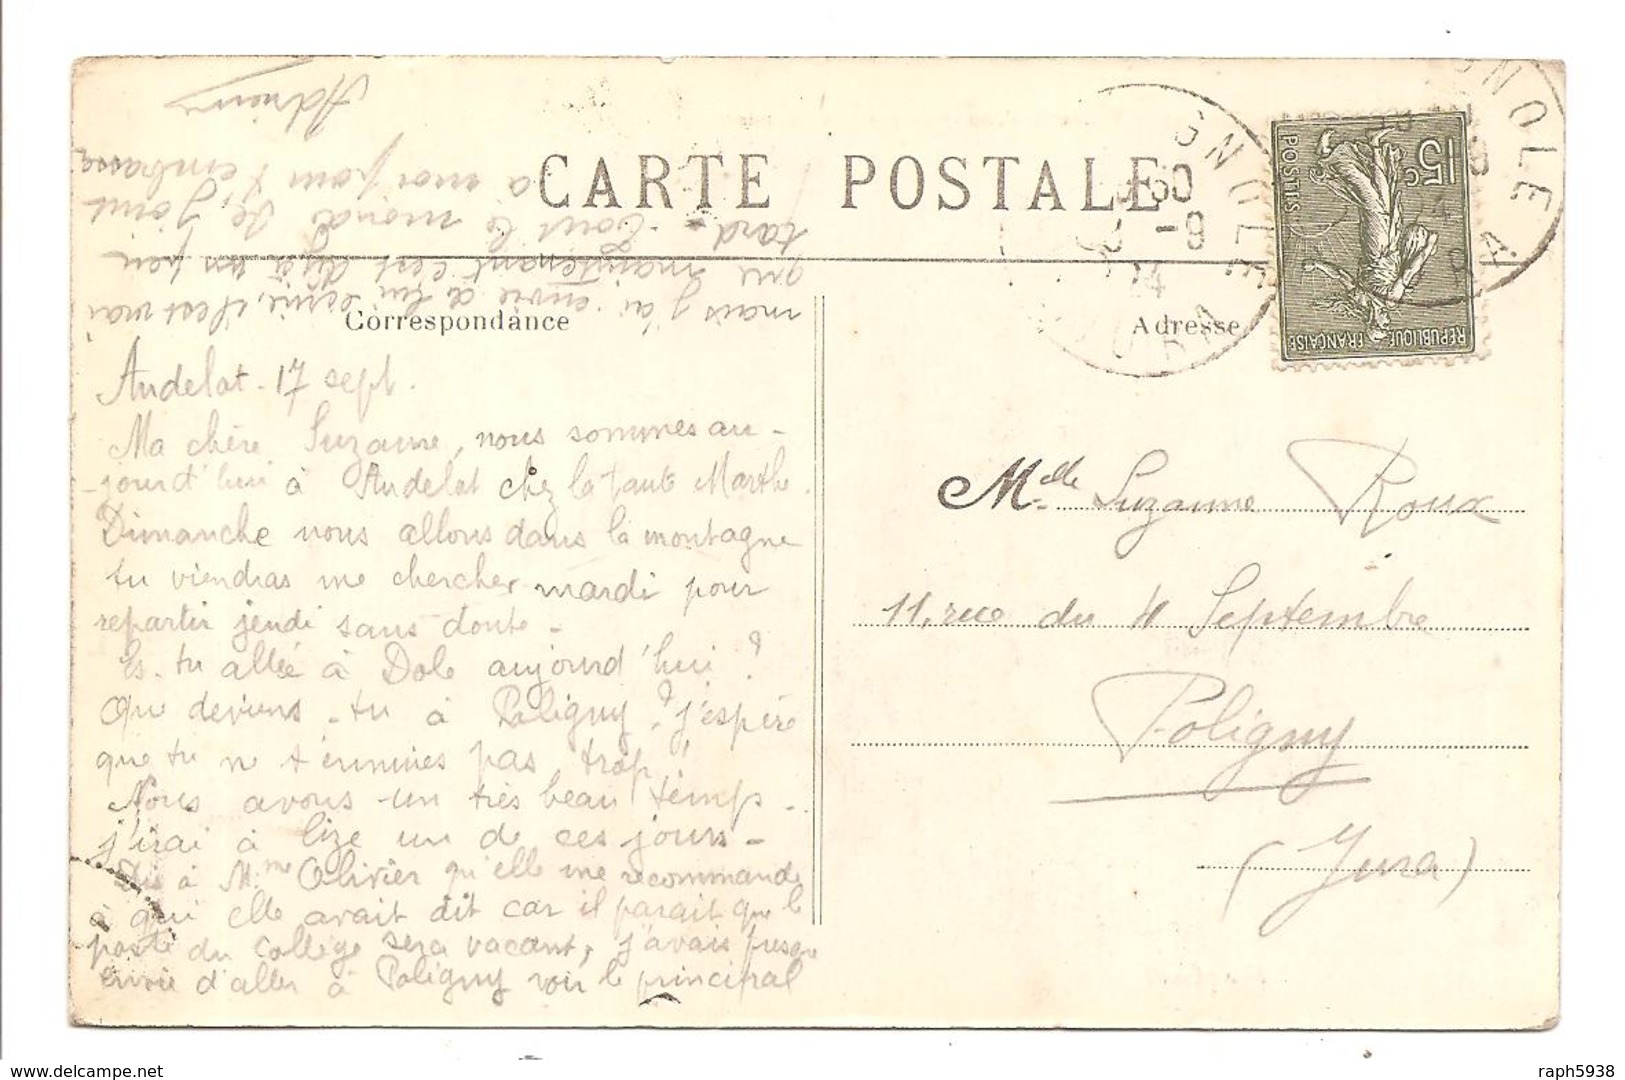 CARTE POSTALE
Correspondance
Adresse
Andelot - 17 sept.
Ma chère Suzanne, nous sommes au-
jourd'hui à Andelot chez la tante Marthe.
Dimanche nous allons dans la montagne
tu viendras me chercher mardi pour
repartir jeudi sans doute -
Es-tu allée à Dole aujourd'hui ?
Que deviens-tu à Poligny ? j'espère
que tu ne t'ennuies pas trop.
Nous avons un très beau temps -
j'irai à Lize un de ces jours -
Dis à Mme Olivier qu'elle me recommande
à qui elle avait dit car il parait que le
poste du collège sera vacant, j'avais presque
envie d'aller à Poligny voir le principal
mais j'ai envie de lui écrire, il est vrai
que maintenant c'est déjà un peu
tard - Tout le monde se joint
à moi pour t'embrasser
Melle Suzanne Roux
11, rue du 4 Septembre
Poligny
(Jura)
15c
POSTES
REPUBLIQUE FRANÇAISE
GNOLE
JURA
-9
24
www.delcampe.net
raph5938